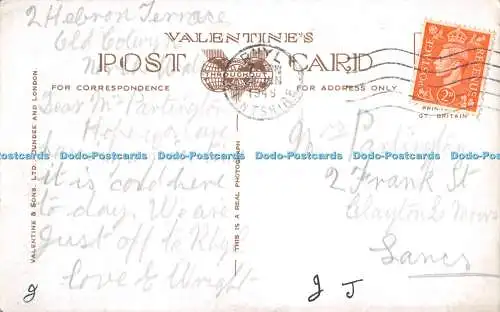 2 Hebron Terrace
Old Colwyn
VALENTINE'S
POST CARD
THROUGHOUT
FOR CORRESPONDENCE
FOR ADDRESS ONLY
RHYL
FLINTSHIRE
POSTAGE REVENUE
2D
GT. BRITAIN
Dear Mrs Partington
Hope you are
it is cold here
to day. We are
Just off to Rhyl
love E Wright
Mrs Partington
2 Frank St
Clayton Le Moors
Lancs
VALENTINE & SONS, LTD. DUNDEE AND LONDON
THIS IS A REAL PHOTOGRAPH
Dodo-Postcards Dodo-Postcards Dodo-Postcards Dodo-Postcards Dodo-Postcards
J J